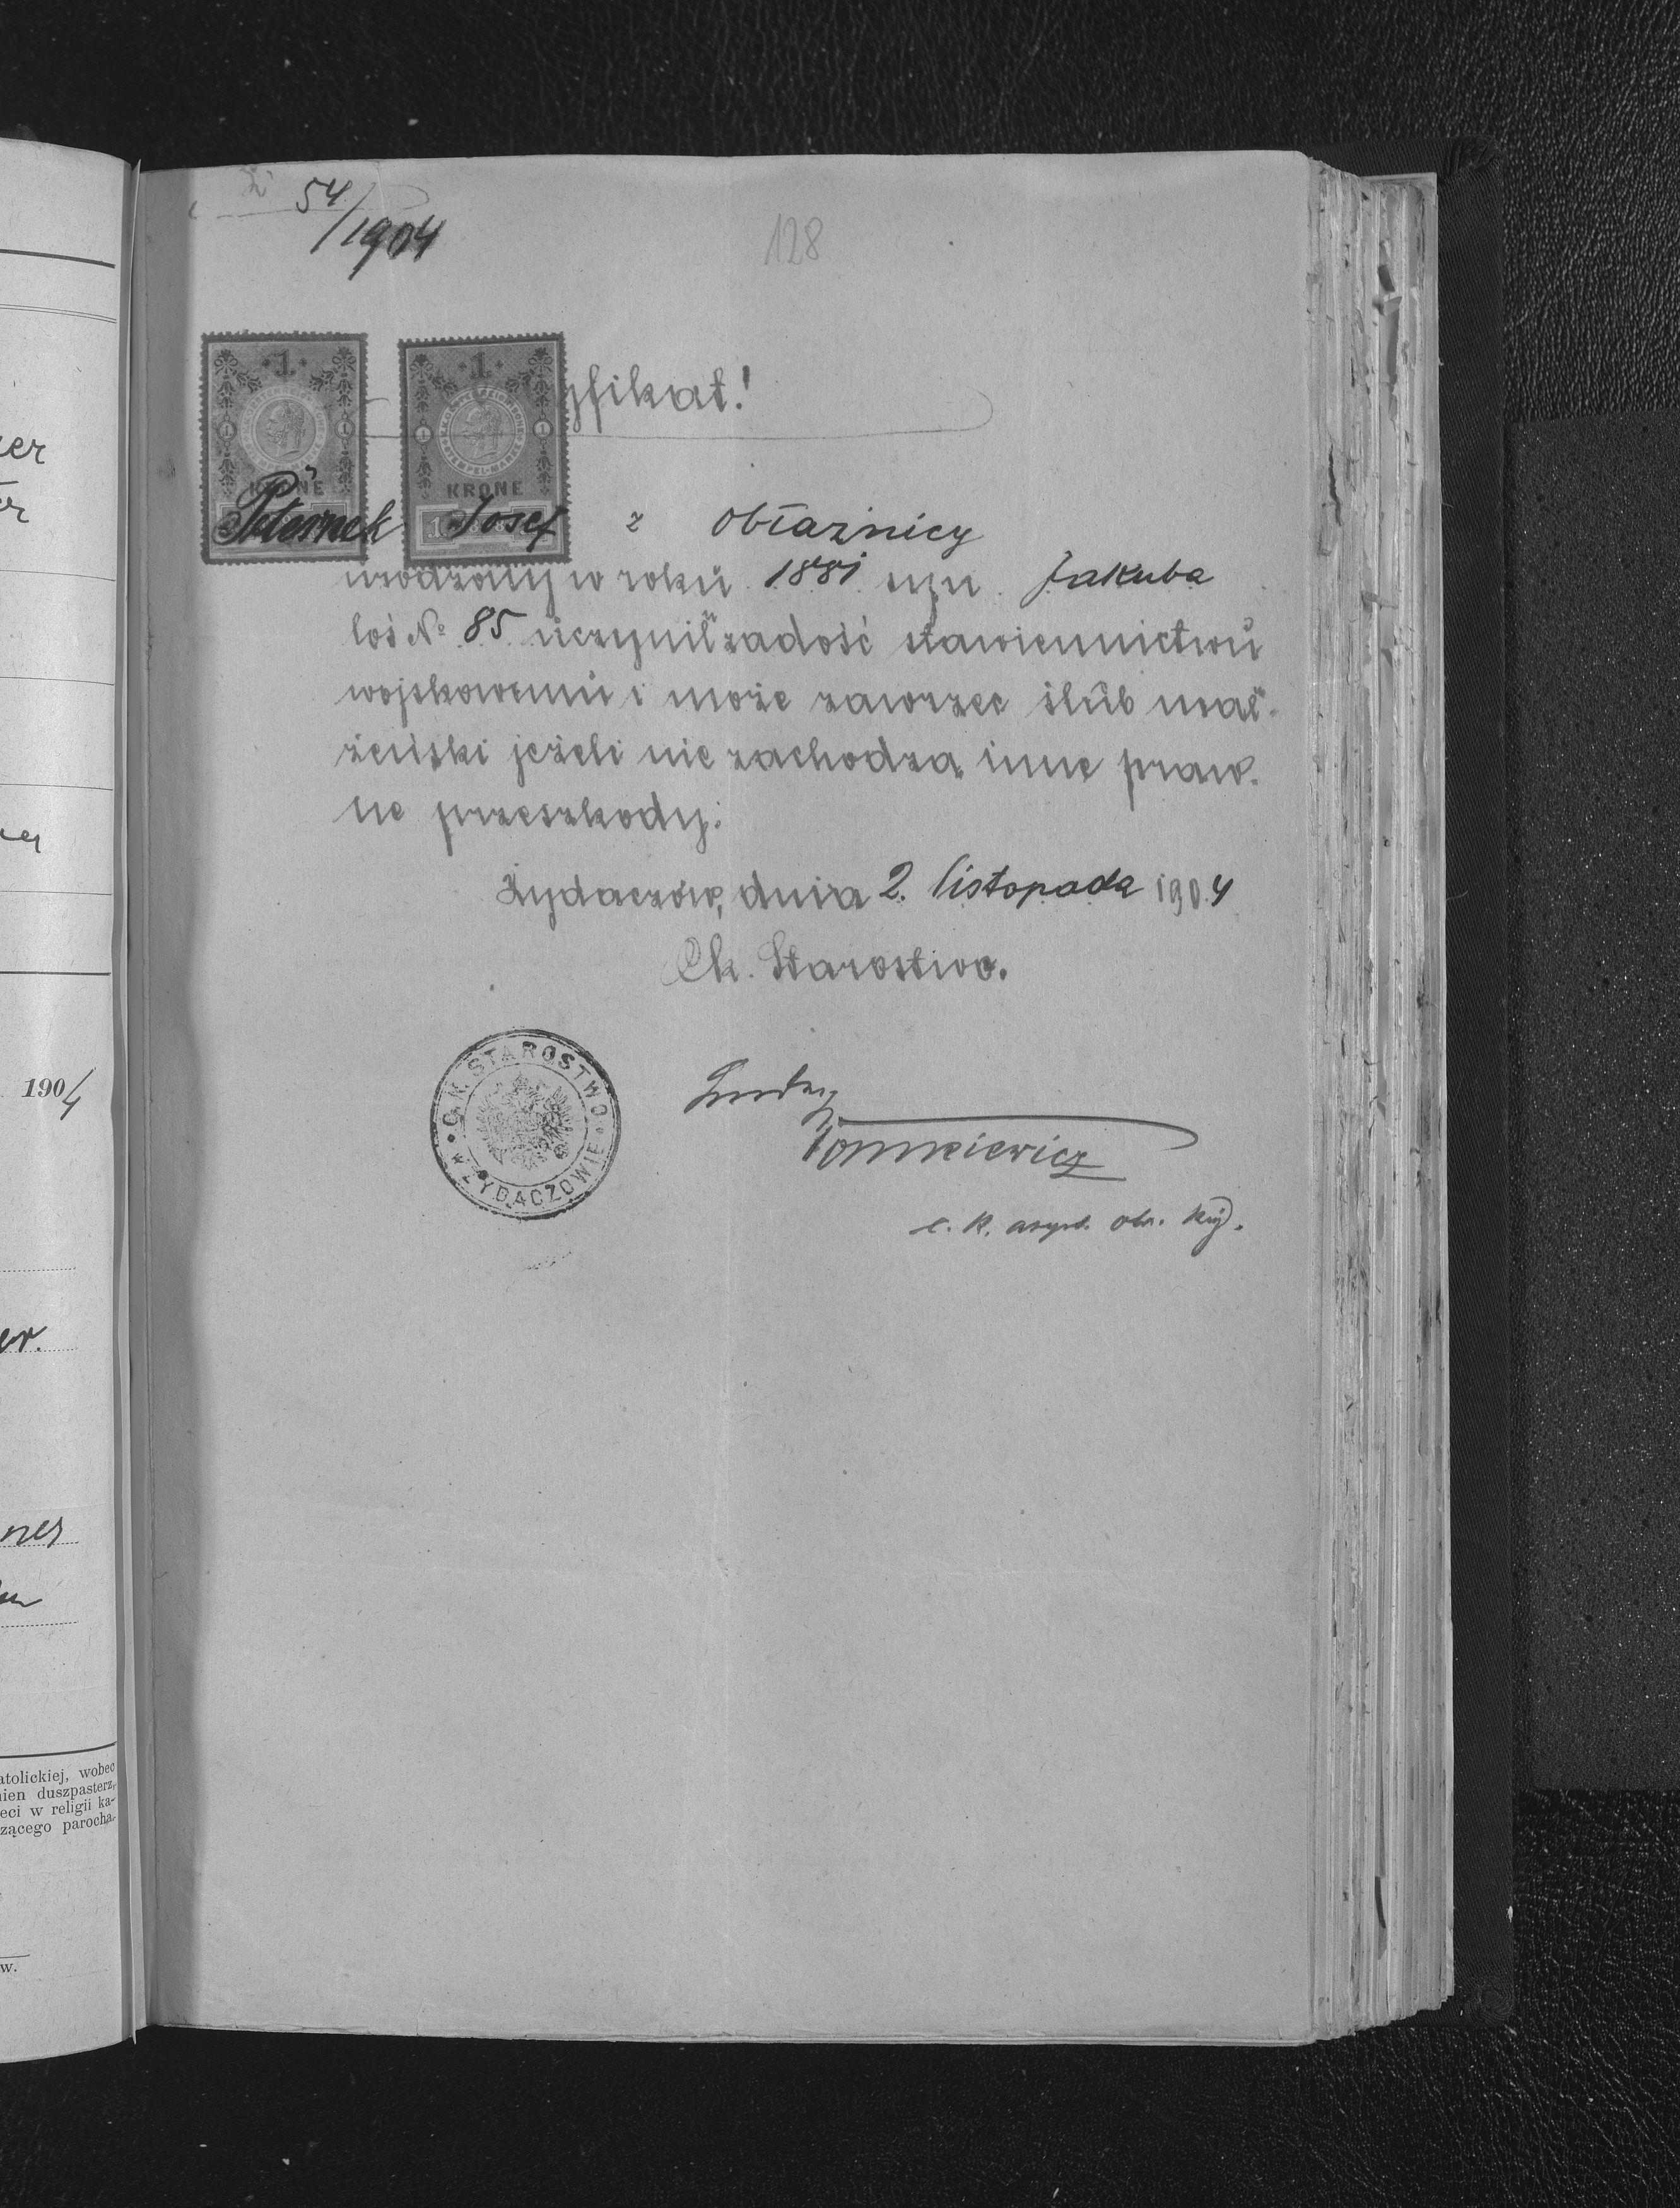 54/1904
128
yfikat!
1
KRONE
1
KRONE
Josef z Obłaźnicy
urodzony w roku 1881 syn Jakuba
los № 85 uczynił zadość stawiennictwu
wojskowemu i może zawrzec ślub mał-
żeński jeżeli nie zachodzą inne praw-
ne przeszkody.
Żydaczów, dnia 2. listopada 1904
Ck. Starostwo.
C. K. STAROSTWO
w ŻYDACZOWIE
c. k. asyst.
er
1904
er.
ner
atolickiej, wobec
nien duszpasterz,
eci w religii ka-
zącego parocha.
w.